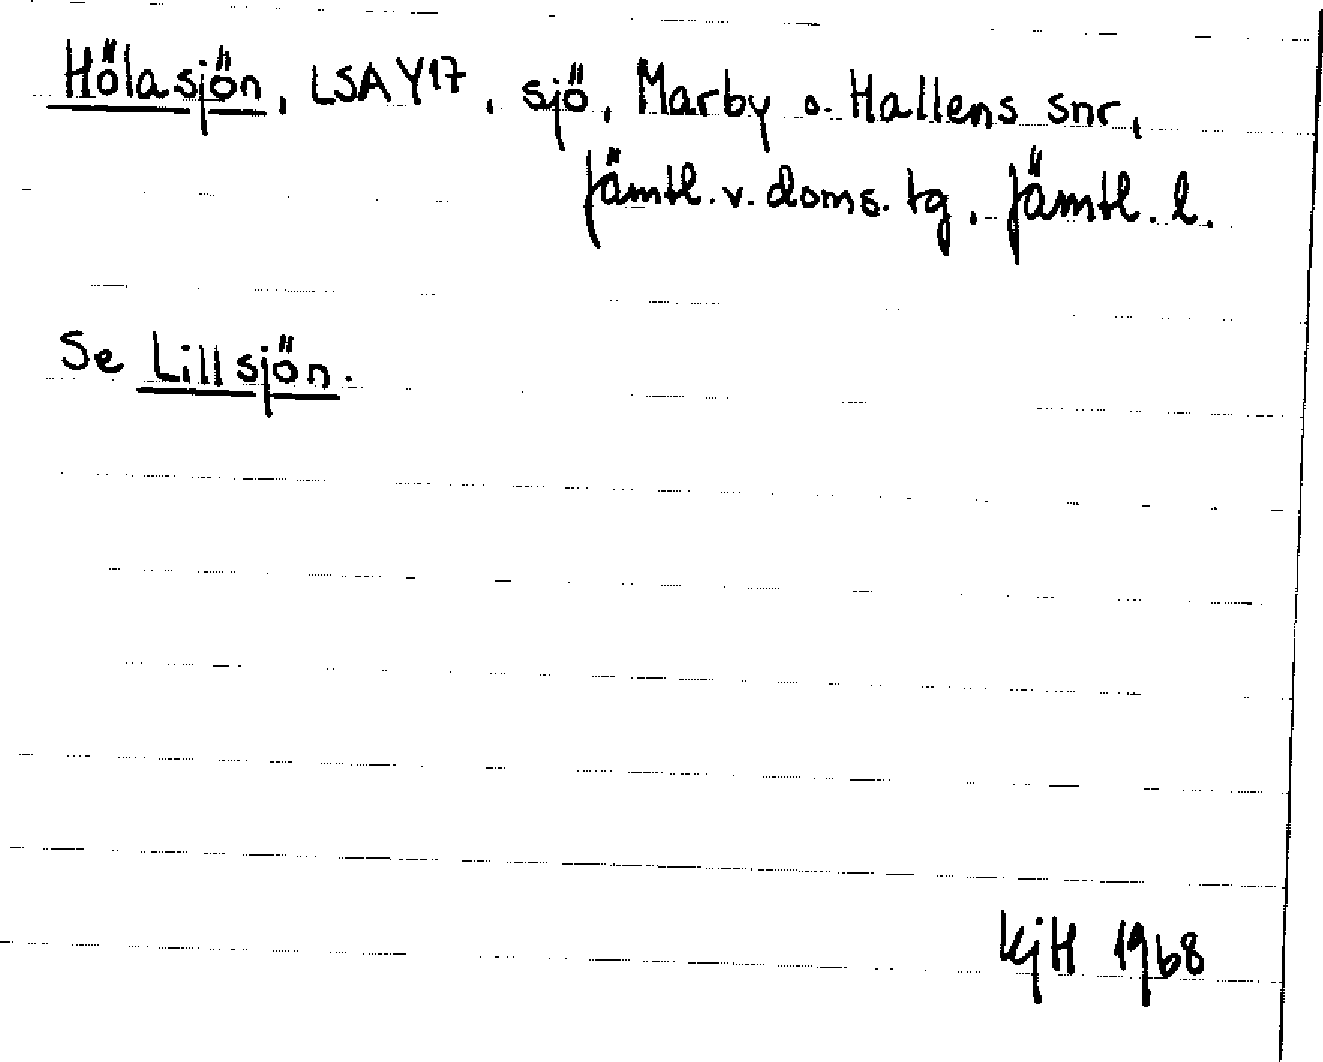 Hölasjön, LSA Y17, sjö, Marby o. Hallens snr,
Jämtl. v. doms. tg, Jämtl. l.
Se Lillsjön.
KjH 1968